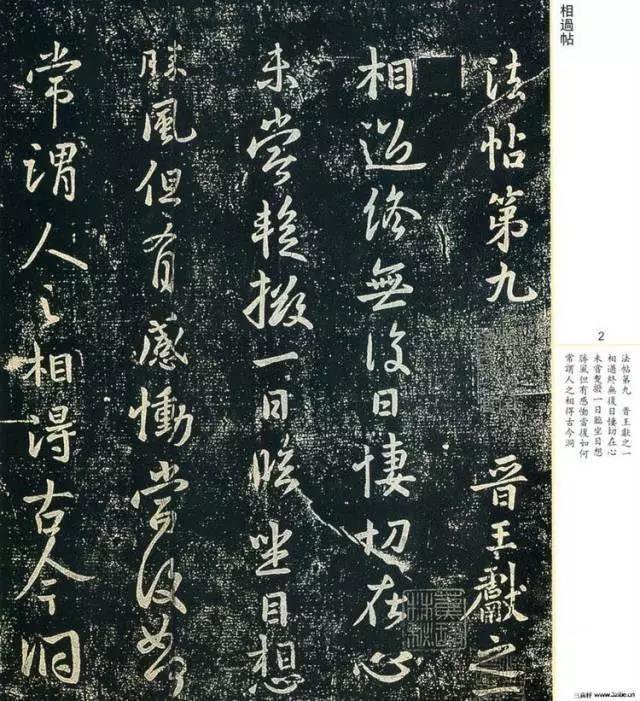 相過帖
法帖第九 晋王獻之一
相過終無復日悽切在心
未嘗撥一日臨坐目想
勝風但有感慟當復如何
常謂人之相得古今洞
2
法帖第九 晋王獻之一
相過終無復日悽切在心
未嘗撥一日臨坐目想
勝風但有感慟當復如何
常謂人之相得古今洞